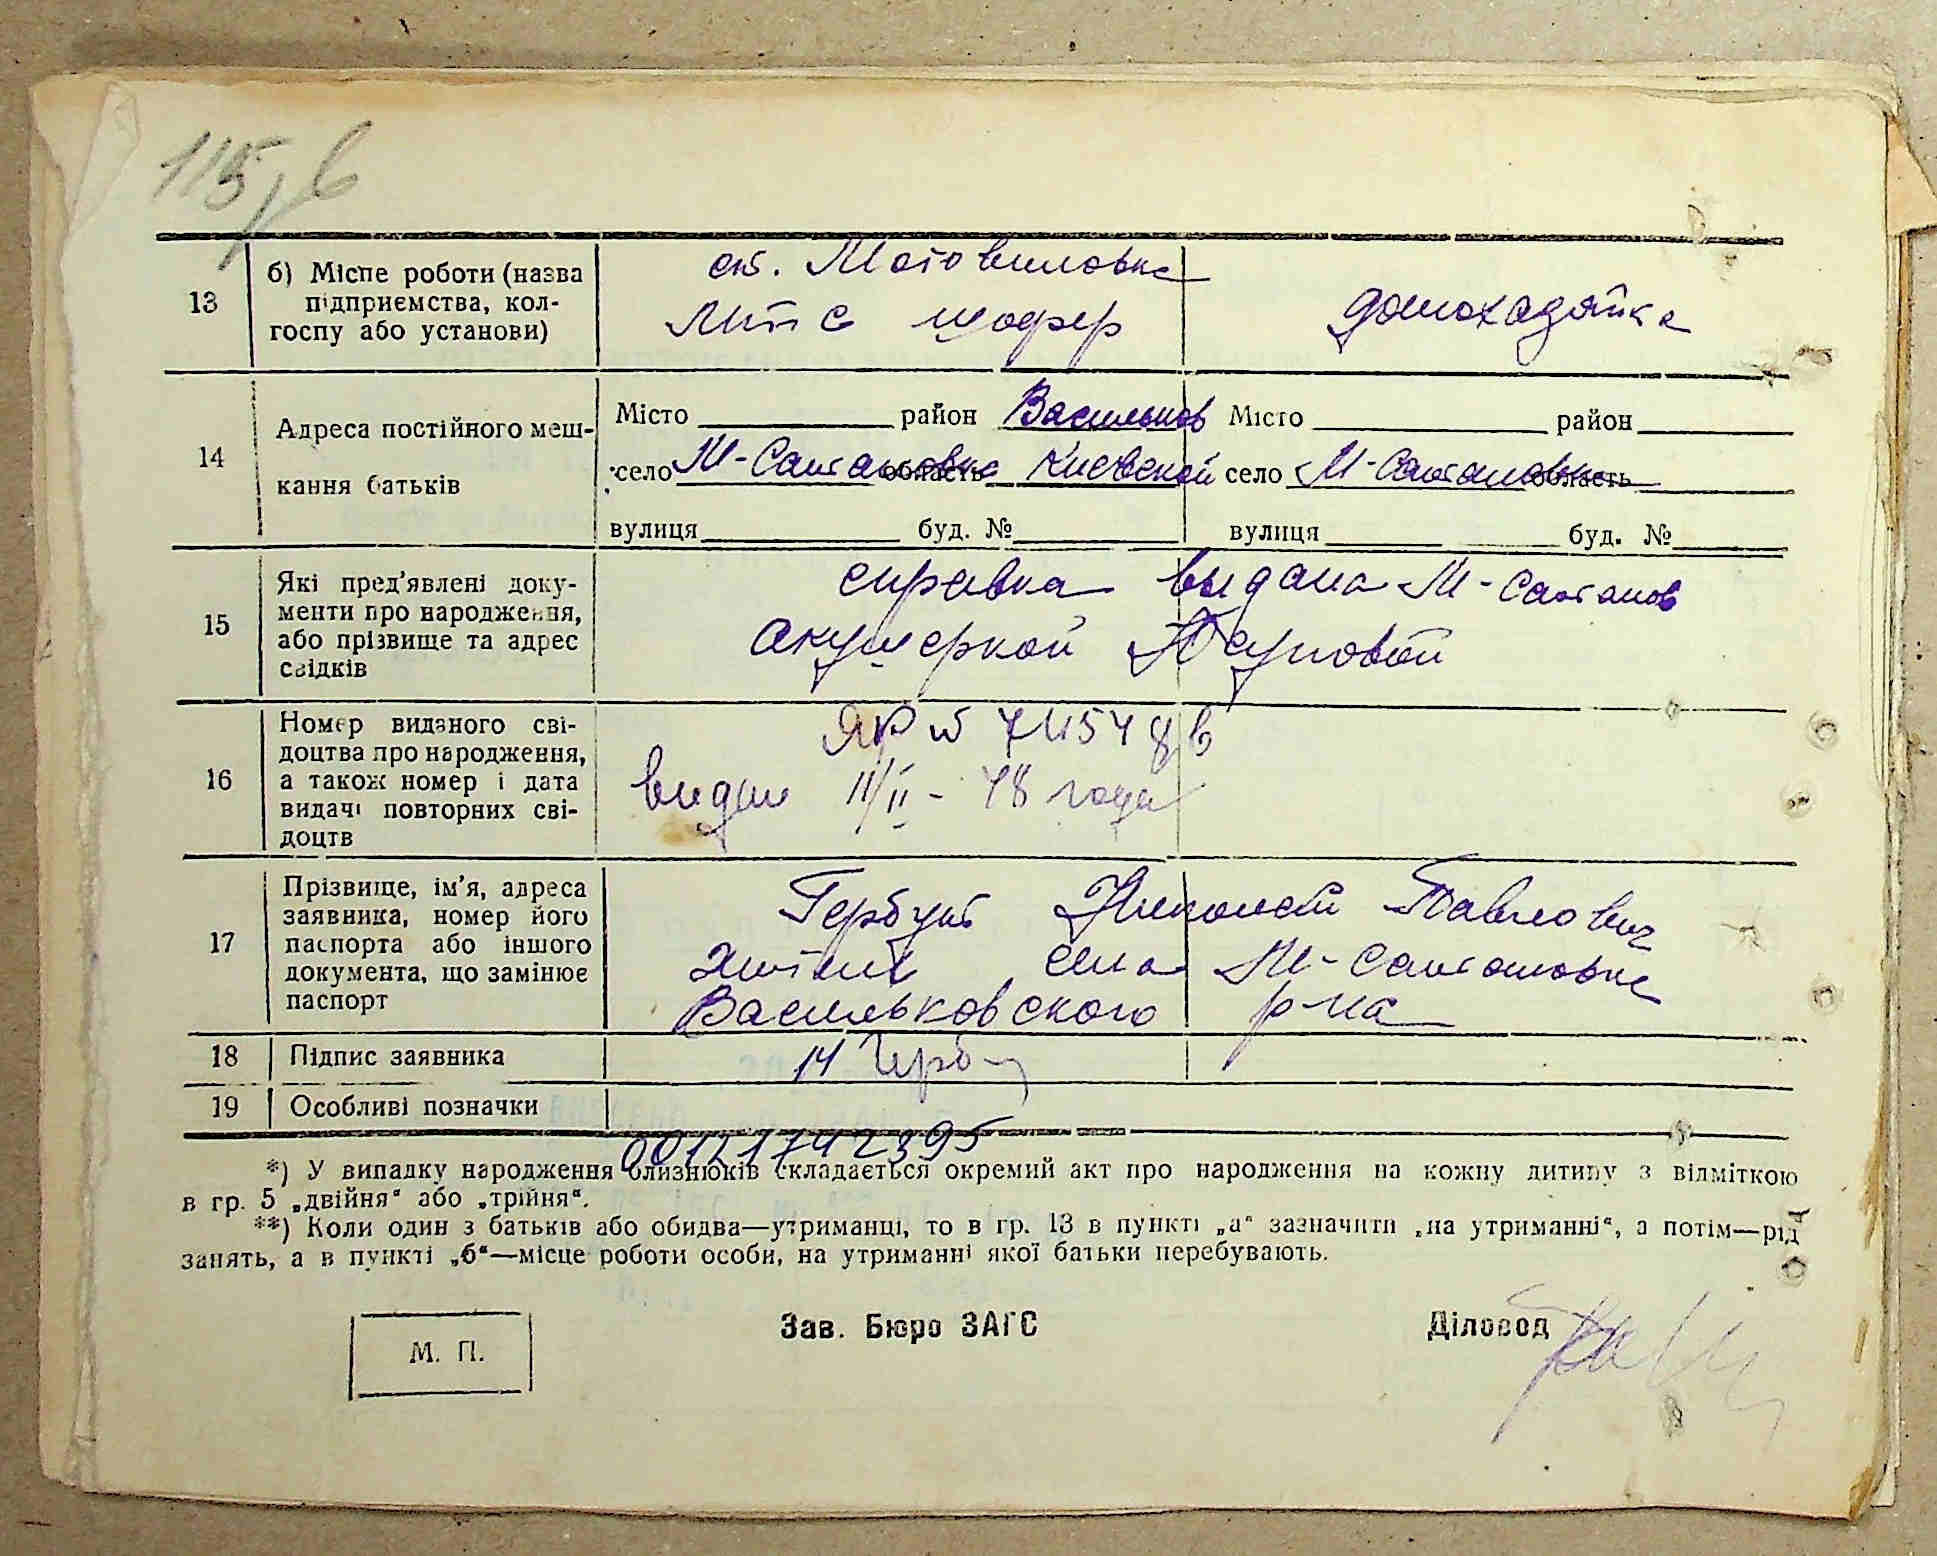 115/в
13
б) Місце роботи (назва
підприємства, кол-
госпу або установи)
ст. Мотовиловка
МТС шофер
домохазяйка
14
Адреса постійного меш-
кання батьків
Місто район Васильков
село М-Салтановка область Киевской
вулиця буд. №
Місто район
село М-Салтановка область
вулиця буд. №
15
Які пред'явлені доку-
менти про народження,
або прізвище та адрес
свідків
справка выдана М-Салтанов
акушеркой
16
Номер виданого сві-
доцтва про народження,
а також номер і дата
видачі повторних сві-
доцтв
ЯР №
выдан 11/II - 48 года
17
Прізвище, ім'я, адреса
заявника, номер його
паспорта або іншого
документа, що замінює
паспорт
Гербут Николай Павлович
житель села М-Салтановка
Васильковского р-на
18
Підпис заявника
19
Особливі позначки
00121742395
*) У випадку народження близнюків складається окремий акт про народження на кожну дитину з відміткою
в гр. 5 „двійня" або „трійня".
**) Коли один з батьків або обидва—утриманці, то в гр. 13 в пункті „а" зазначити „на утриманні", а потім—рід
занять, а в пункті „б"—місце роботи особи, на утриманні якої батьки перебувають.
М. П.
Зав. Бюро ЗАГС
Діловод